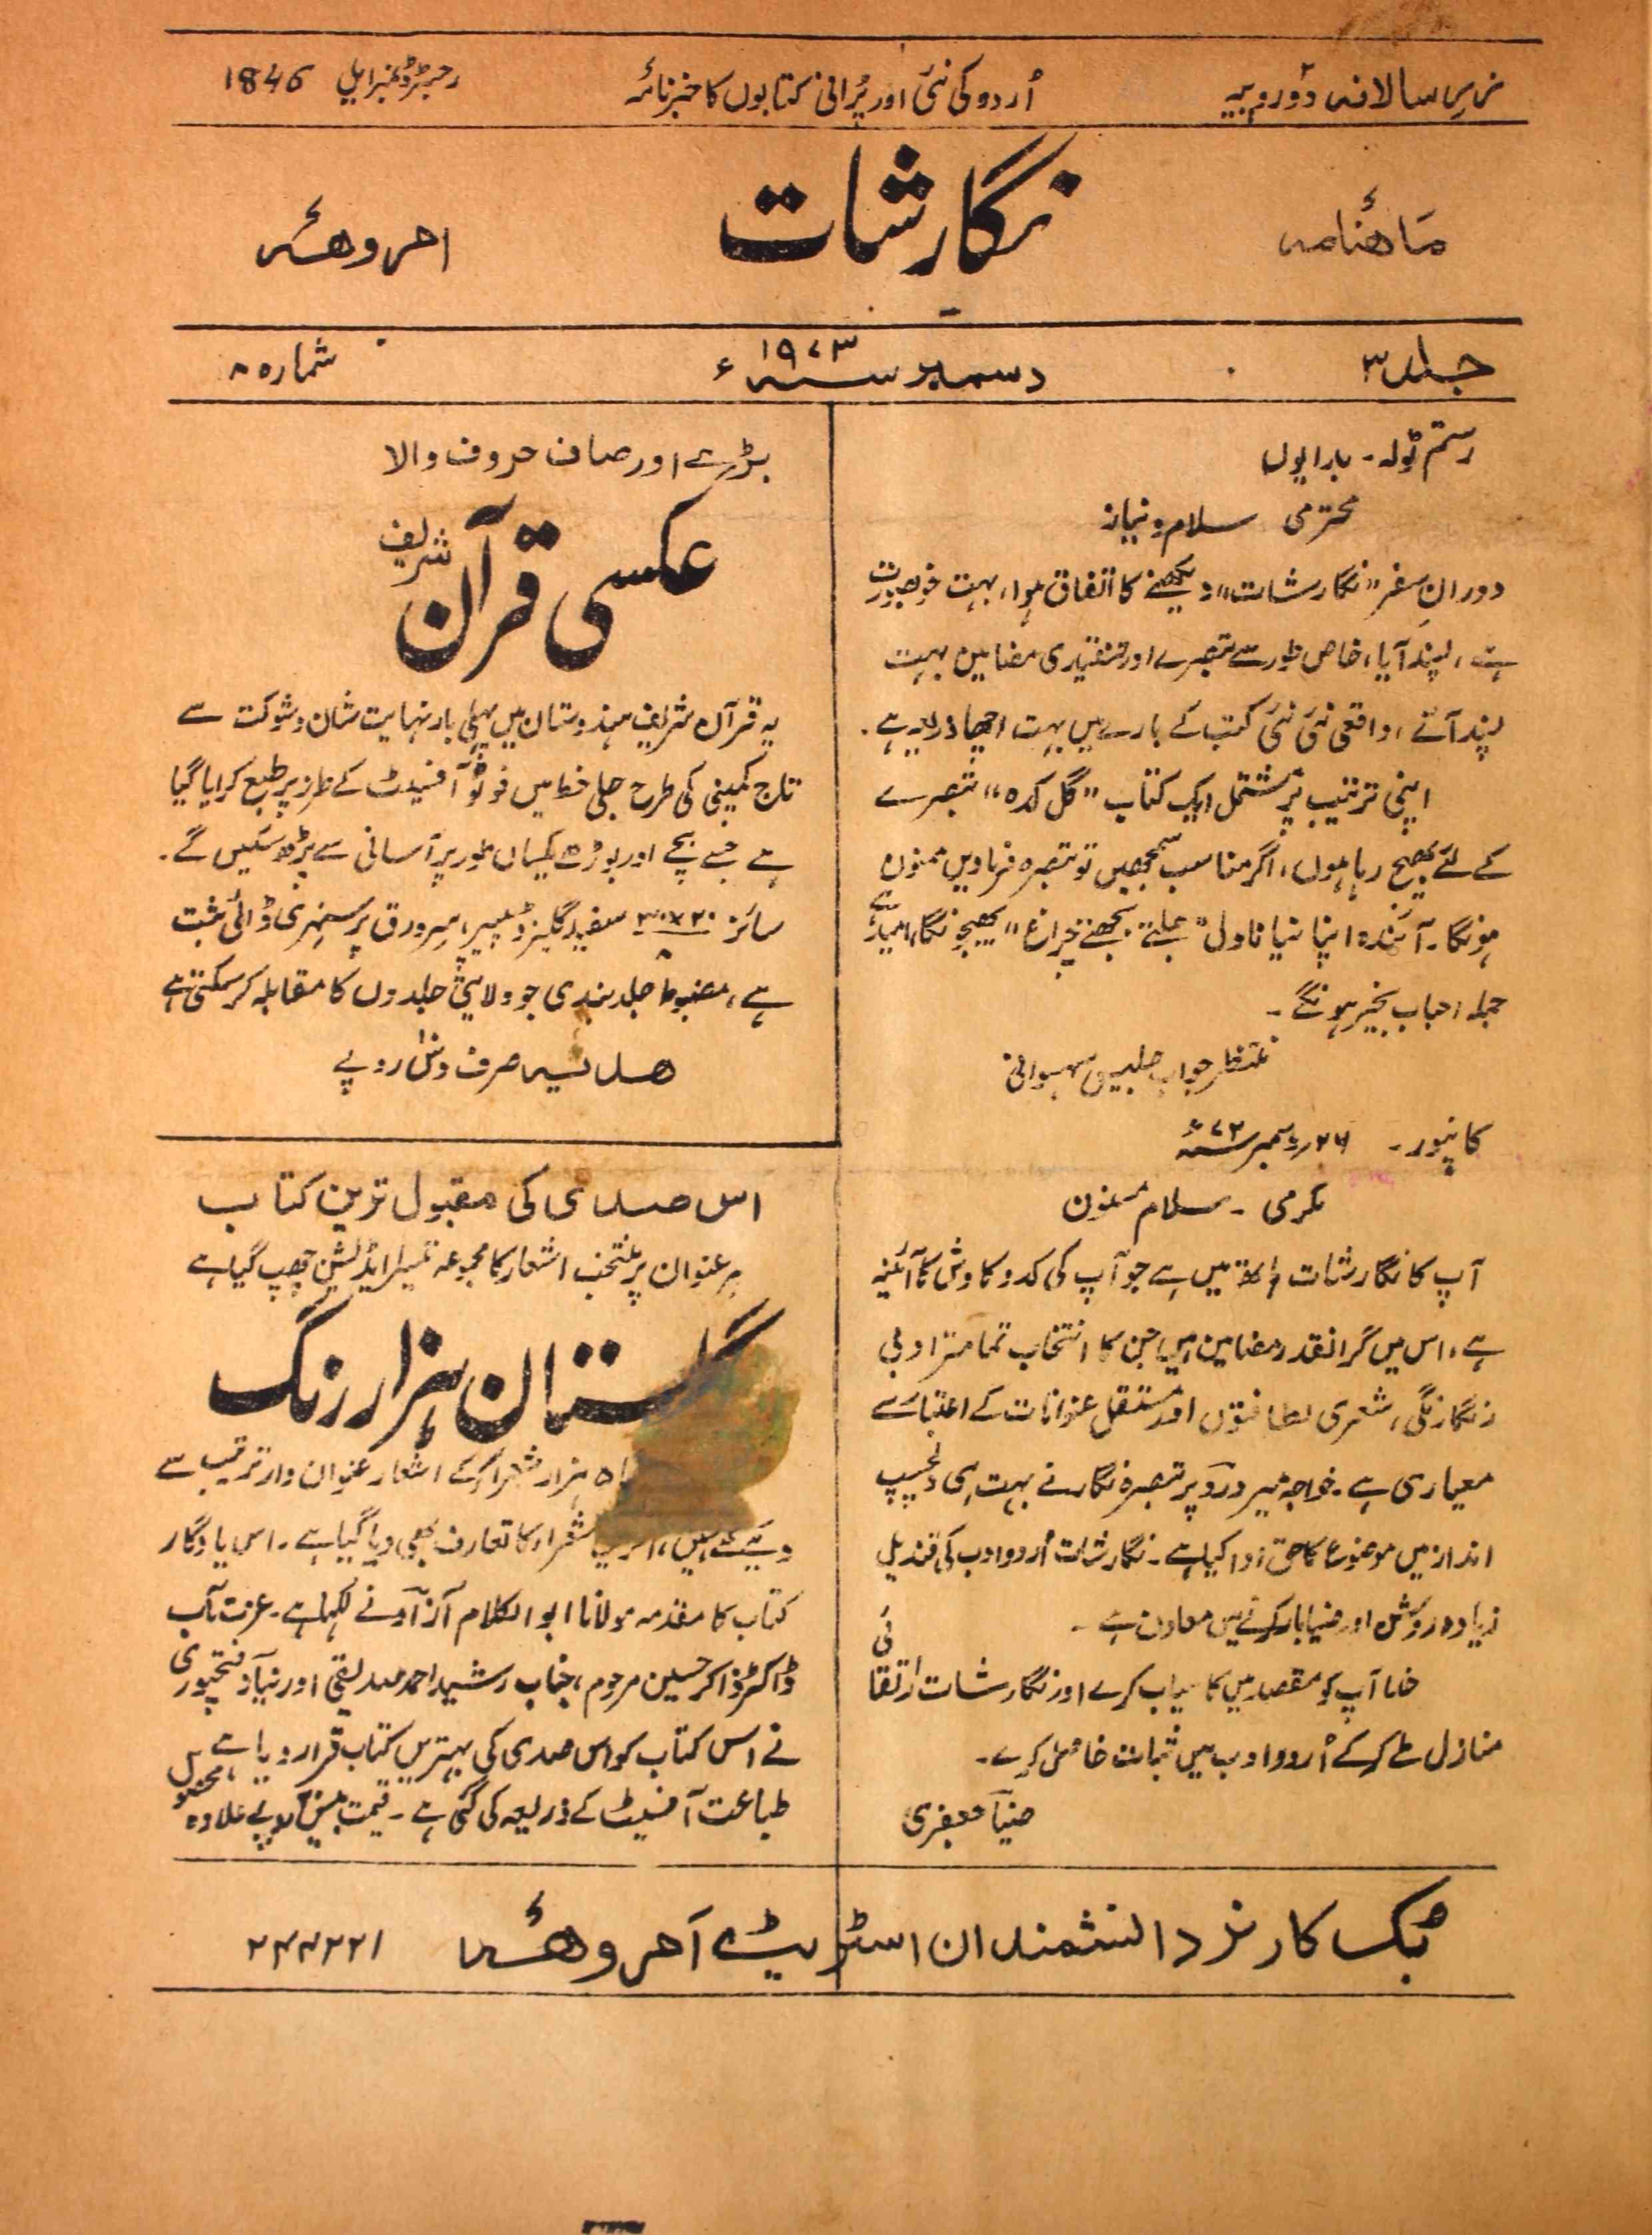 زرِ سالانہ دو روپیہ
اُردو کی نئی اور پُرانی کتابوں کا خبرنامہ
رجسٹرڈ نمبر ایل 1846
ماہنامہ
نگارشات
امروہہ
جلد ۳
دسمبر سنہ ۱۹۷۳ء
شمارہ ۸
رستم ٹولہ۔ بدایوں
محترمی سلام و نیاز
دورانِ سفر "نگارشات" دیکھنے کا اتفاق ہوا، بہت خوبصورت
ہے، پسند آیا، خاص طور سے تبصرے اور تنقیدی مضامین بہت
پسند آئے، واقعی نئی نئی کتب کے بارے میں بہت اچھا ذریعہ ہے۔
اپنی ترتیب پر مشتمل ایک کتاب "گل کدہ" تبصرے
کے لئے بھیج رہا ہوں، اگر مناسب سمجھیں تو تبصرہ فرماویں ممنون
ہونگا۔ آئندہ اپنا نیا ناول "جلتے بجھتے چراغ" بھیجونگا، امید ہے
جملہ احباب بخیر ہونگے۔
منتظر جواب سہسوانی
کانپور۔ ۲۶ دسمبر سنہ ۷۳ء
مکرمی ۔ سلام مسنون
آپ کا نگارشات میں ہے جو آپ کی کد و کاوش کا آئینہ
ہے، اس میں گرانقدر مضامین ہیں جن کا انتخاب تمامتر ادبی
رنگا رنگی، شعری لطافتوں اور مستقل عنوانات کے اعتبار سے
معیاری ہے۔ خواجہ میر درد پر تبصرہ نگار نے بہت ہی دلچسپ
انداز میں موضوع کا حق ادا کیا ہے۔ نگارشات اُردو ادب کی قندیل
زیادہ روشن اور ضیابار کرنے میں معاون ہے۔
خدا آپ کو مقصد میں کامیاب کرے اور نگارشات ارتقائی
منازل طے کر کے اُردو ادب میں ثبات حاصل کرے۔
ضیا جعفری
بڑے اور صاف حروف والا
عکسی قرآن شریف
یہ قرآن شریف ہندوستان میں پہلی بار نہایت شان و شوکت سے
تاج کمپنی کی طرح جلی خط میں فوٹو آفسیٹ کے طرز پر طبع کرایا گیا
ہے جسے بچے اور بوڑھے یکساں طور پر آسانی سے پڑھ سکیں گے۔
سائز ۲۰×۳۰/۸ سفید گلیزڈ پیپر، سرورق پر سنہری ڈائی ثبت
ہے، مضبوط جلد بندی جو ولایتی جلدوں کا مقابلہ کر سکتی ہے
ھدیہ صرف دس روپے
اس صدی کی مقبول ترین کتاب
ہر عنوان پر منتخب اشعار کا مجموعہ تیسرا ایڈیشن چھپ گیا ہے
گلستان ہزار رنگ
ہزار شعراء کے اشعار عنوان وار ترتیب سے
دیئے گئے ہیں، شعراء کا تعارف بھی دیا گیا ہے۔ اس یادگار
کتاب کا مقدمہ مولانا ابوالکلام آزاد نے لکھا ہے۔ عزت مآب
ڈاکٹر ذاکر حسین مرحوم، جناب رشید احمد صدیقی اور نیاز فتحپوری
نے اس کتاب کو اس صدی کی بہترین کتاب قرار دیا ہے
طباعت آفسیٹ کے ذریعہ کی گئی ہے۔ قیمت بیس روپے علاوہ محصول
بک کارنر دانشمندان اسٹریٹ امروہہ ۲۴۴۲۲۱